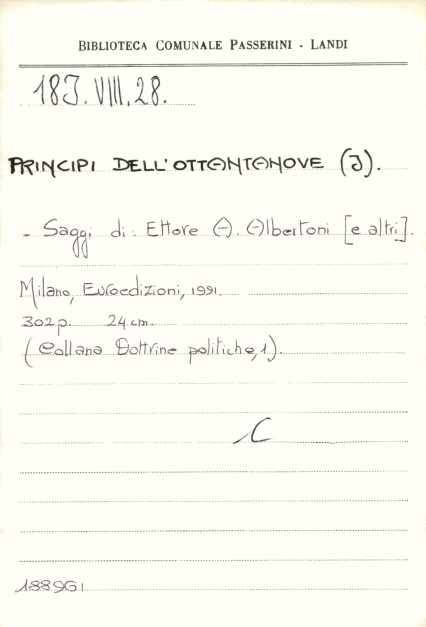 BIBLIOTECA COMUNALE PASSERINI - LANDI
18J.VIII.28.
PRINCIPI DELL'OTTANTANOVE (J).
- Saggi di Ettore A. Albertoni [e altri].
Milano, Euroedizioni, 1991.
302p. 24cm.
(Collana Dottrine politiche, 1).
C
188961